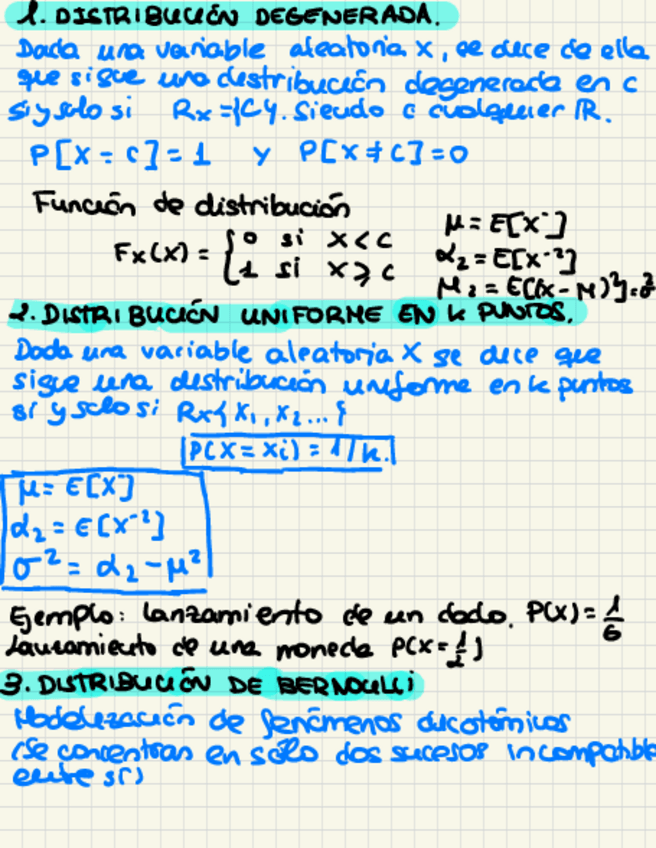 1. DISTRIBUCIÓN DEGENERADA.
Dada una variable aleatoria X, se dice de ella
que sigue una distribución degenerada en c
si y solo si Rx={C}. Siendo c cualquier IR.
P[X = c] = 1 y P[X ≠ C] = 0
Función de distribución
Fx(x) = { 0 si x < c
1 si x ⩾ c
μ = E[X]
α2 = E[X^-2]
μ2 = E[(X - M)²] = σ²
2. DISTRIBUCIÓN UNIFORME EN K PUNTOS.
Dada una variable aleatoria X se dice que
sigue una distribución uniforme en k puntos
si y solo si Rx{ X1, X2 ... }
P(X = Xi) = 1/k.
μ = E[X]
α2 = E[X^-2]
σ² = α2 - μ²
Ejemplo: lanzamiento de un dado. P(X) = 1/6
Lanzamiento de una moneda P(X = 1/2)
3. DISTRIBUCIÓN DE BERNOULLI
Modelización de fenómenos dicotómicos
(Se concentran en sólo dos sucesos incompatible
entre sí)